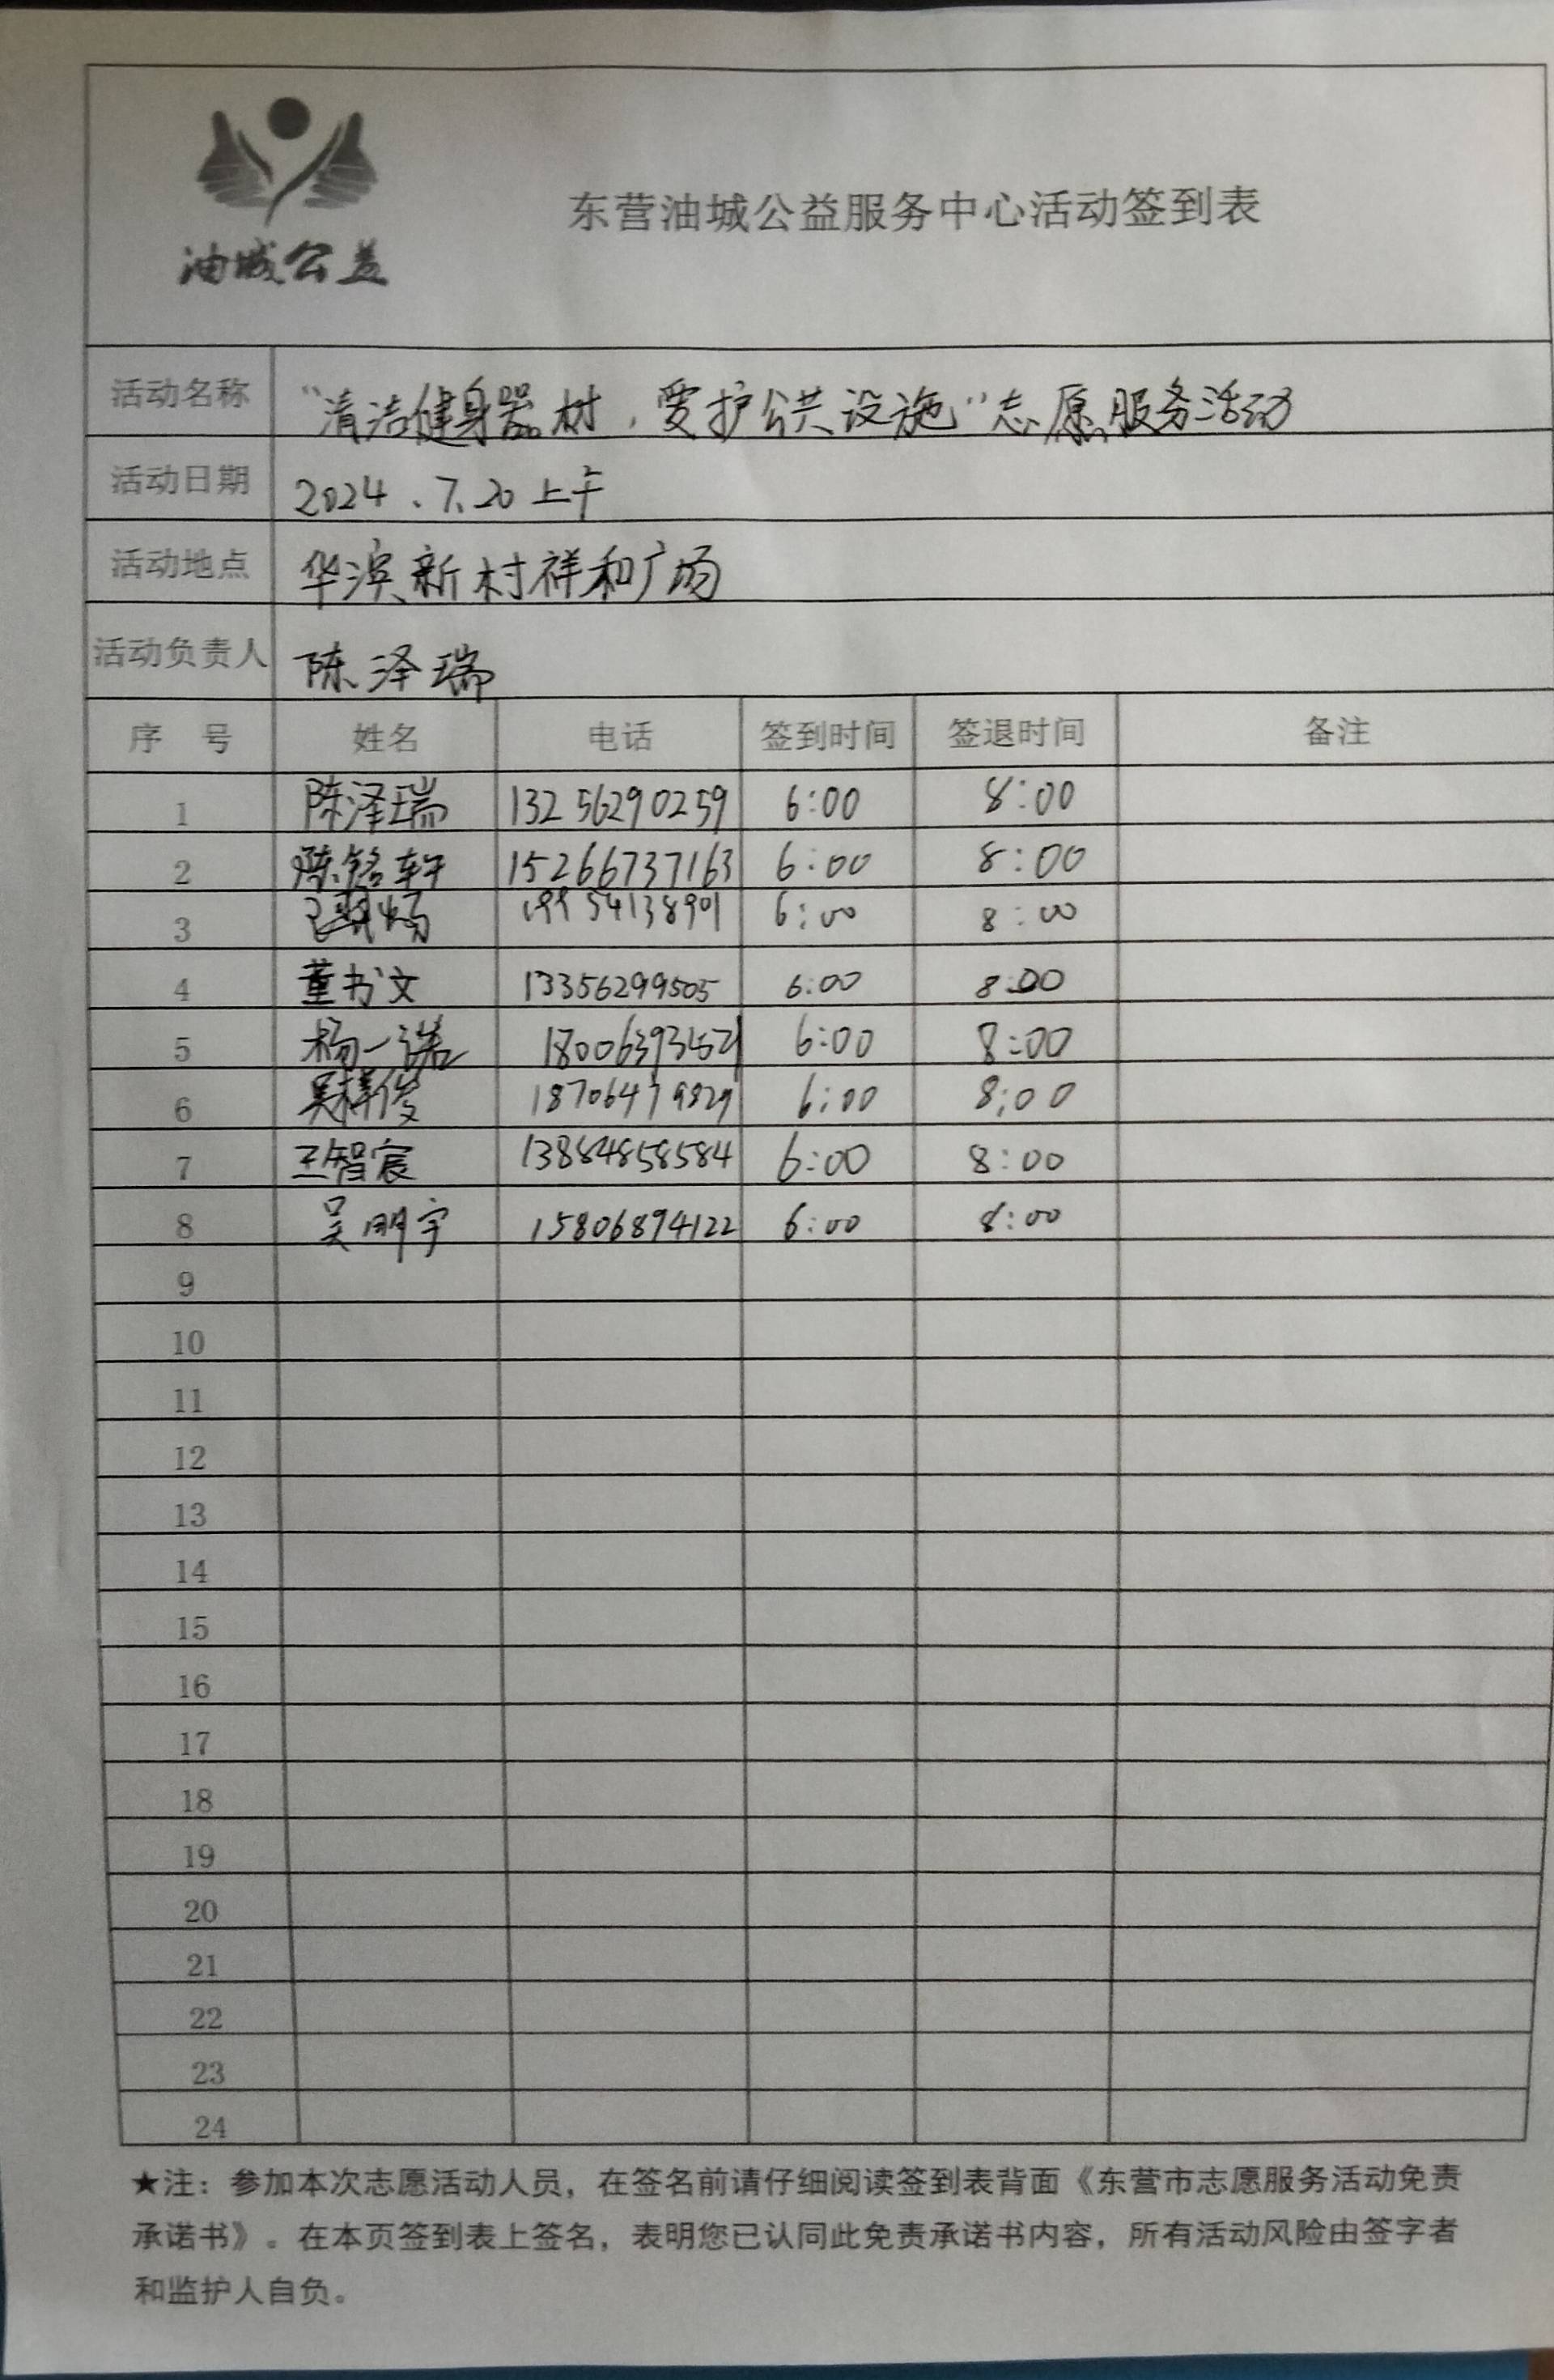 油城公益
东营油城公益服务中心活动签到表
活动名称 “清洁健身器材，爱护公共设施”志愿服务活动
活动日期 2024.7.20 上午
活动地点 华滨新村祥和广场
活动负责人 陈泽瑞
序 号 姓名 电话 签到时间 签退时间 备注
1 陈泽瑞 13256290259 6:00 8:00
2 陈铭轩 15266737163 6:00 8:00
3 19954138901 6:00 8:00
4 董书文 13356299505 6:00 8:00
5 杨一诺 6:00 8:00
6 吴梓俊 18706479829 6:00 8:00
7 王智宸 13884858584 6:00 8:00
8 吴明宇 15806894122 6:00 8:00
9
10
11
12
13
14
15
16
17
18
19
20
21
22
23
24
★注：参加本次志愿活动人员，在签名前请仔细阅读签到表背面《东营市志愿服务活动免责
承诺书》。在本页签到表上签名，表明您已认同此免责承诺书内容，所有活动风险由签字者
和监护人自负。